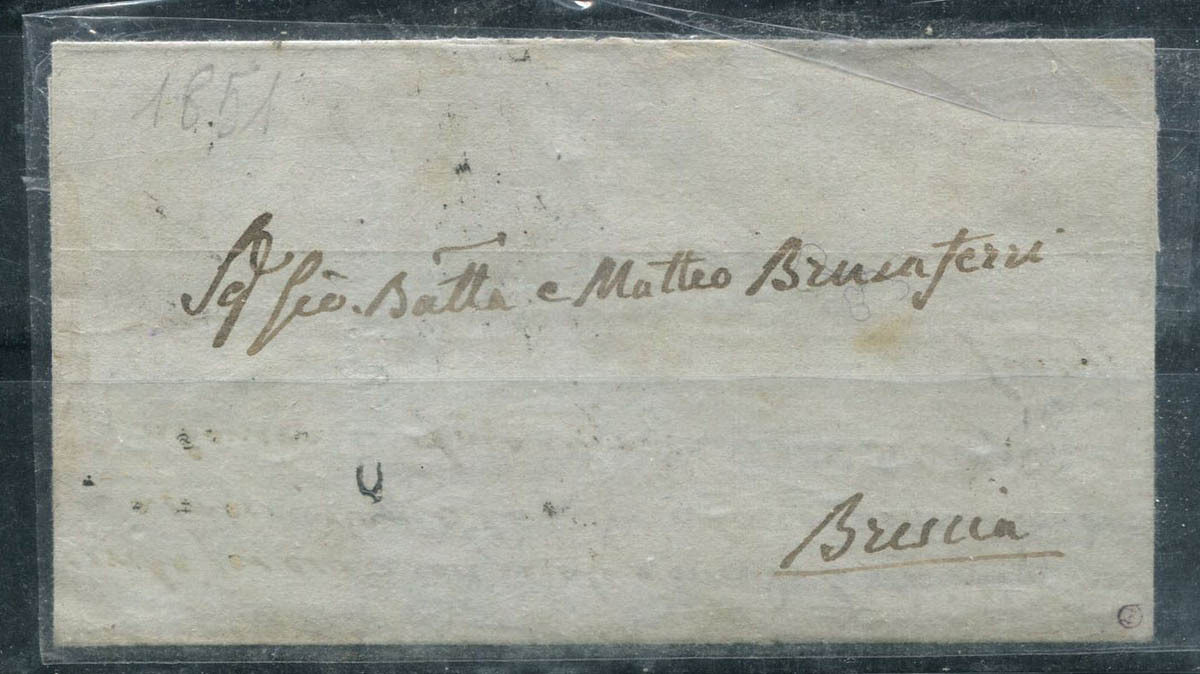 1851
Sigʳⁱ Gio. Batta e Matteo Brunaferri
Brescia